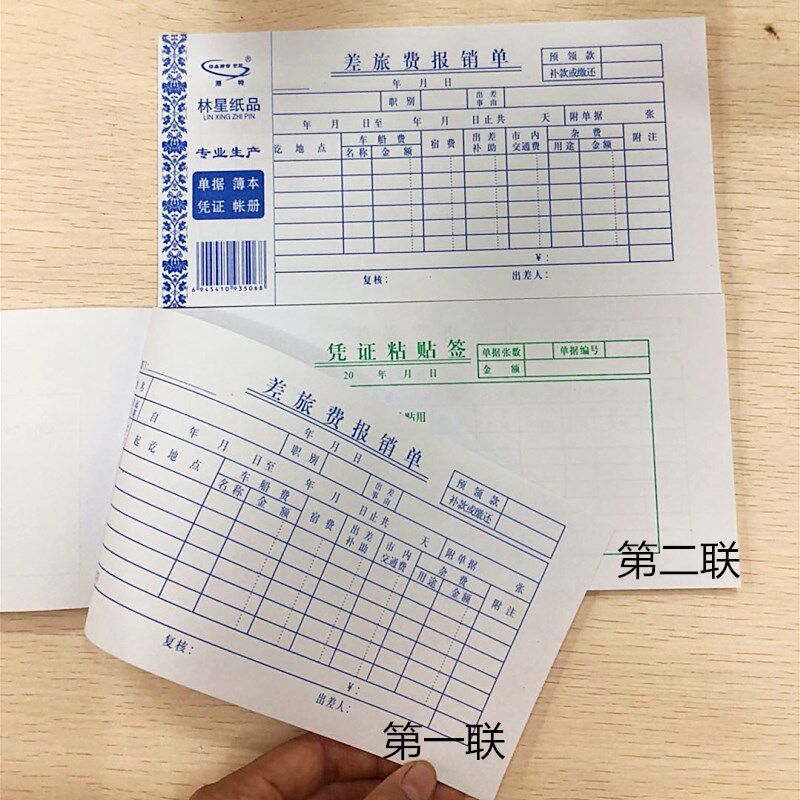 港特
林星纸品
LIN XING ZHI PIN
专业生产
单据 簿本
凭证 帐册
6 945410 935068
差旅费报销单
预领款
补款或缴还
年 月 日
职别 出差事由
年 月 日至 年 月 日止共 天 附单据 张
讫地点 车船费 宿费 出差补助 市内交通费 杂费 附注
名称 金额 用途 金额
¥:
复核: 出差人:
凭证粘贴签
单据张数 单据编号
金额
20 年 月 日
贴用
第二联
差旅费报销单
年 月 日
预领款
补款或缴还
名 职别 出差事由
自 年 月 日至 年 月 日止共 天 附单据 张
起讫地点 车船费 宿费 出差补助 市内交通费 杂费 附注
名称 金额 用途 金额
¥:
复核: 出差人:
第一联